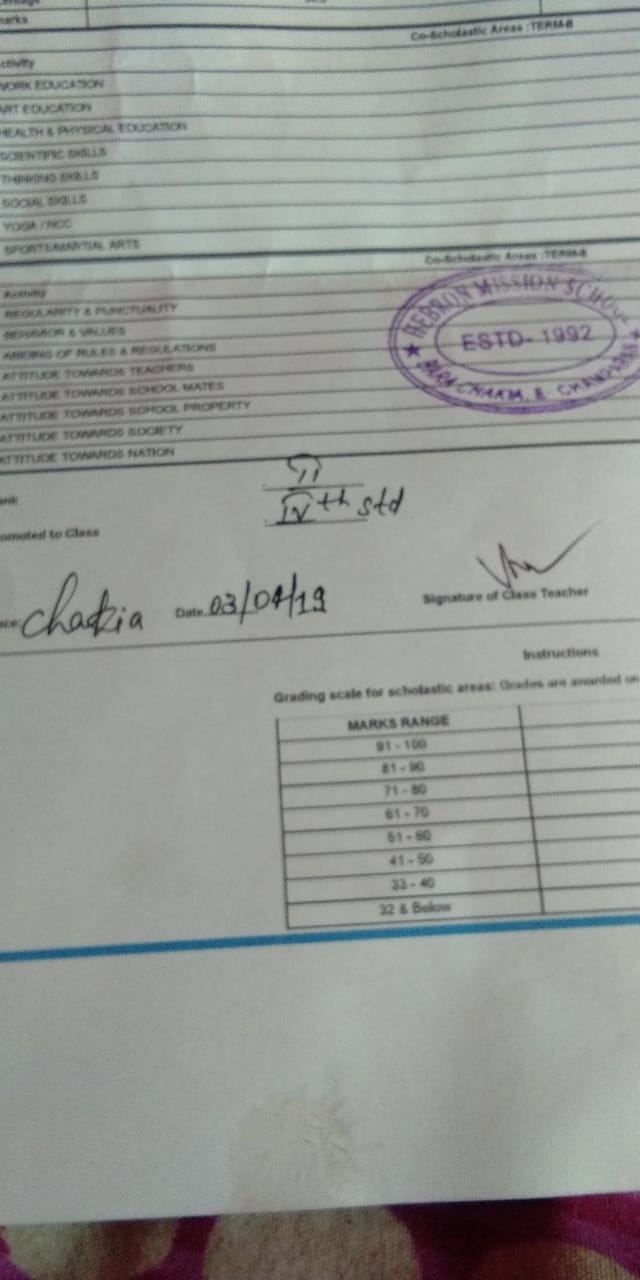 marks
Co-Scholastic Areas :TERM-II
ctivity
WORK EDUCATION
ART EDUCATION
HEALTH & PHYSICAL EDUCATION
SCIENTIFIC SKILLS
THINKING SKILLS
SOCIAL SKILLS
YOGA / NCC
SPORTS/MARTIAL ARTS
Co-Scholastic Areas :TERM-II
Activity
REGULARITY & PUNCTUALITY
BEHAVIOR & VALUES
ABIDING OF RULES & REGULATIONS
ATTITUDE TOWARDS TEACHERS
ATTITUDE TOWARDS SCHOOL MATES
ATTITUDE TOWARDS SCHOOL PROPERTY
ATTITUDE TOWARDS SOCIETY
ATTITUDE TOWARDS NATION
HEBRON MISSION SCHOOL
ESTD- 1992
ank II
omoted to Class IVth std
ace: Chakia Date 03/04/19 Signature of Class Teacher
Instructions
Grading scale for scholastic areas: Grades are awarded on
MARKS RANGE
91 - 100
81 - 90
71 - 80
61 - 70
51 - 60
41 - 50
33 - 40
32 & Below